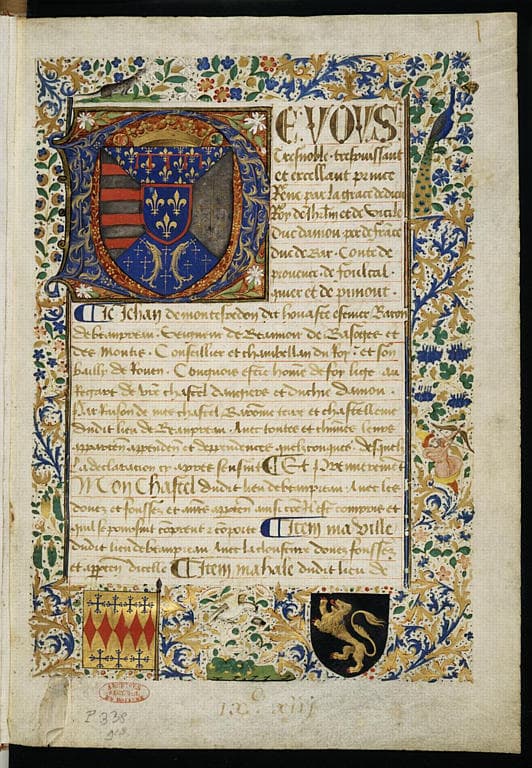 1
DE VOUS
Tresnoble trespuissant
et excellant prince
Rene par la grace de dieu
Roy de Jhrlm et de Sicile
Duc danjou per de france
Duc de Bar Conte de
provence de foulcal
quier et de pimont
Je Jehan de montespedon dit houaste escuier Baron
de beaupreau Seigneur de Beamoir de Basoges et
des montis Conseillier et chambellan du Roy et son
bailly de Rouen Congnois estre home de foy lige au
regart de vre chastel dangiers et duchie danjou
A raison de mes chastel Baronie terre et chastellenie
dudit lieu de Beaupreau Avec toutes et chune leurs
apparten appenden et deppendences quelxconques desquelx
la declaration cy apres sensuit Et premierement
Mon Chastel dudit lieu de beaupreau Avec les
douez et foussez et
quil se poursuit Item ma ville
dudit lieu de beaupreau Avec la cloueson douez foussez
et apparten dicelle Item ma hale dudit lieu de
P 338
IX xiii